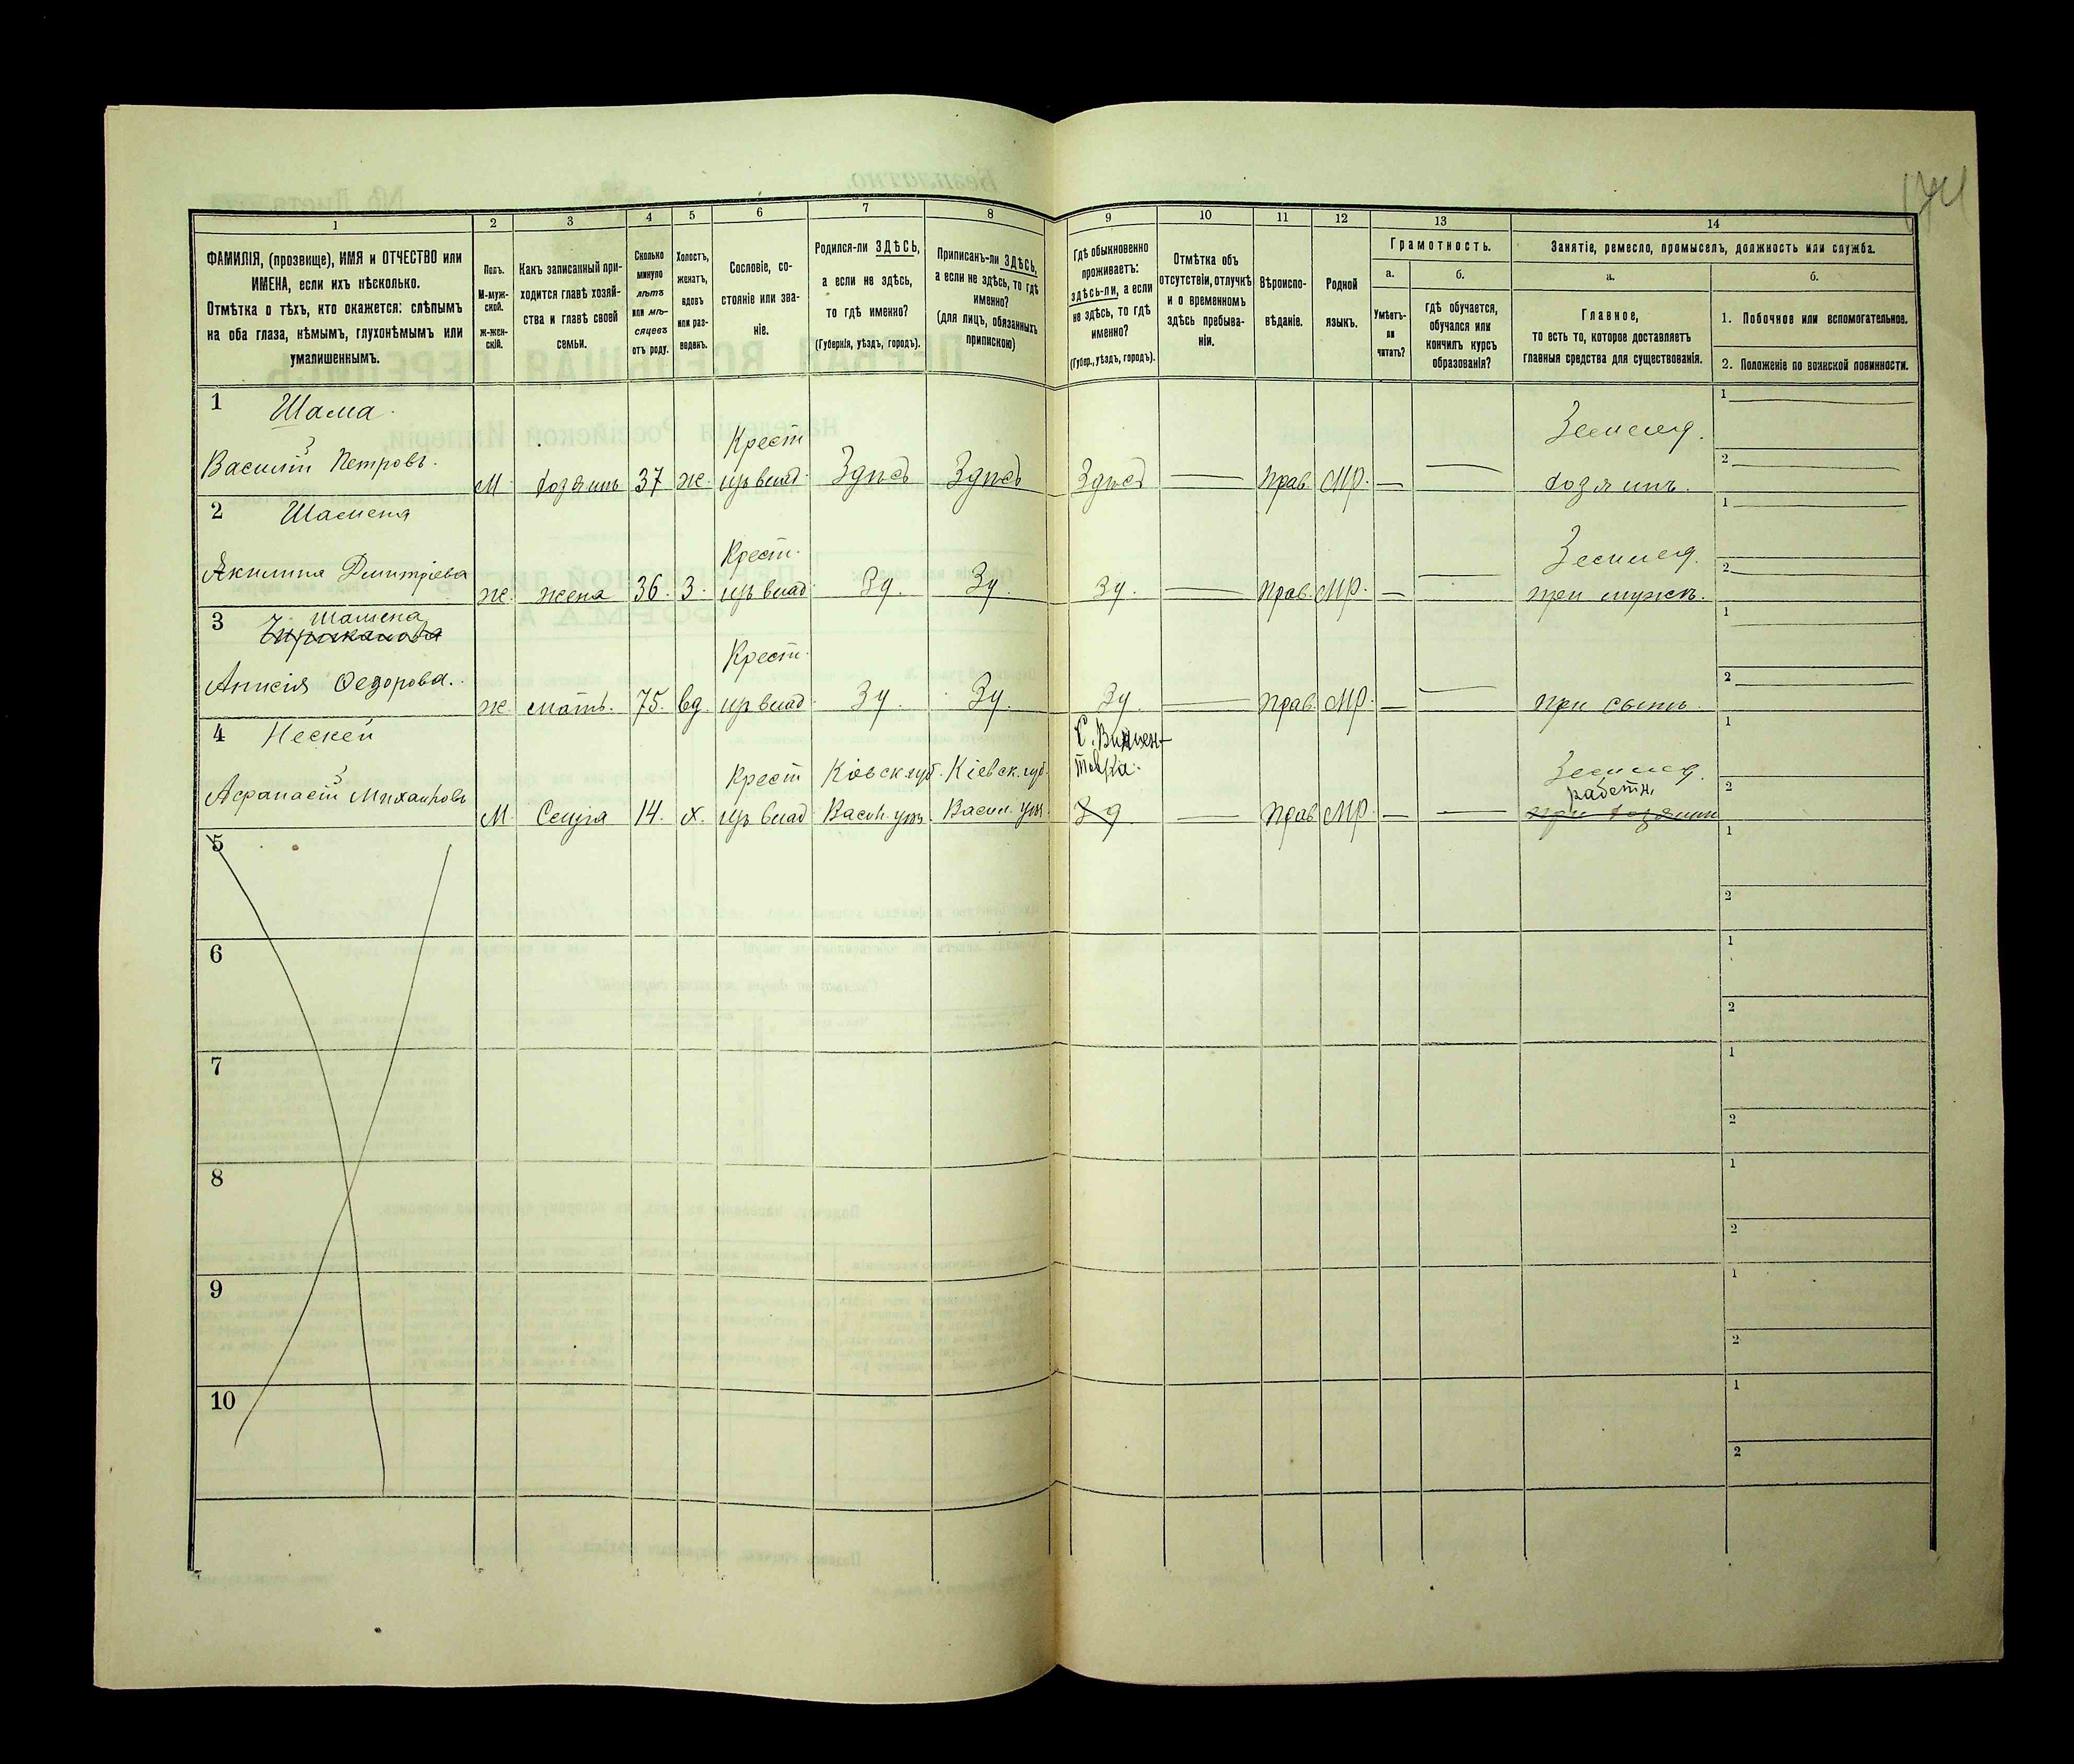 174
1 2 3 4 5 6 7 8 9 10 11 12 13 14
ФАМИЛІЯ, (прозвище), ИМЯ и ОТЧЕСТВО или
ИМЕНА, если ихъ нѣсколько.
Отмѣтка о тѣхъ, кто окажется: слѣпымъ
на оба глаза, нѣмымъ, глухонѣмымъ или
умалишеннымъ.
Полъ.
М-муж-
ской.
Ж-жен-
скій.
Какъ записанный при-
ходится главѣ хозяй-
ства и главѣ своей
семьи.
Сколько
минуло
лѣтъ
или мѣ-
сяцевъ
отъ роду.
Холостъ,
женатъ,
вдовъ
или раз-
веденъ.
Сословіе, со-
стояніе или зва-
ніе.
Родился-ли ЗДѢСЬ,
а если не здѣсь,
то гдѣ именно?
(Губернія, уѣздъ, городъ).
Приписанъ-ли ЗДѢСЬ,
а если не здѣсь, то гдѣ
именно?
(для лицъ, обязанныхъ
припискою)
Гдѣ обыкновенно
проживаетъ:
здѣсь-ли, а если
не здѣсь, то гдѣ
именно?
(Губер., уѣздъ, городъ).
Отмѣтка объ
отсутствіи, отлучкѣ
и о временномъ
здѣсь пребыва-
ніи.
Вѣроиспо-
вѣданіе.
Родной
языкъ.
Грамотность.
а.
Умѣетъ-
ли
читать?
б.
гдѣ обучается,
обучался или
кончилъ курсъ
образованія?
Занятіе, ремесло, промыселъ, должность или служба.
а.
Главное,
то есть то, которое доставляетъ
главныя средства для существованія.
б.
1. Побочное или вспомогательное.
2. Положеніе по воинской повинности.
1 Шама
Крест Земелед. 1
Василій Петровъ. М. хозяинъ 37 ж. изъ влад. Здѣсь Здѣсь Здѣсь — Прав. МР. — — хозяинъ. 2
2 Шаменя 1
Крест. Земелед.
Акилина Дмитріева ж. жена 36. З. изъ влад. Зд. Зд. Зд. — Прав. МР. — — при мужѣ. 2
3 Шамена 1
Крест.
Анисія Ѳедорова. ж. мать. 75. вд. из влад. Зд. Зд. Зд. — Прав. МР. — — при сынѣ. 2
4 Нескей С. 1
Крест Кіевск. губ. Кіевск. губ. Земелед.
Афанасій Михаировъ работн. 2
М. Слуга 14. х. изъ влад Васил. уѣз. Васил. уѣз. Зд. — Прав МР. — — при хозяинѣ
5 1
2
6 1
2
7 1
2
8 1
2
9 1
2
10 1
2